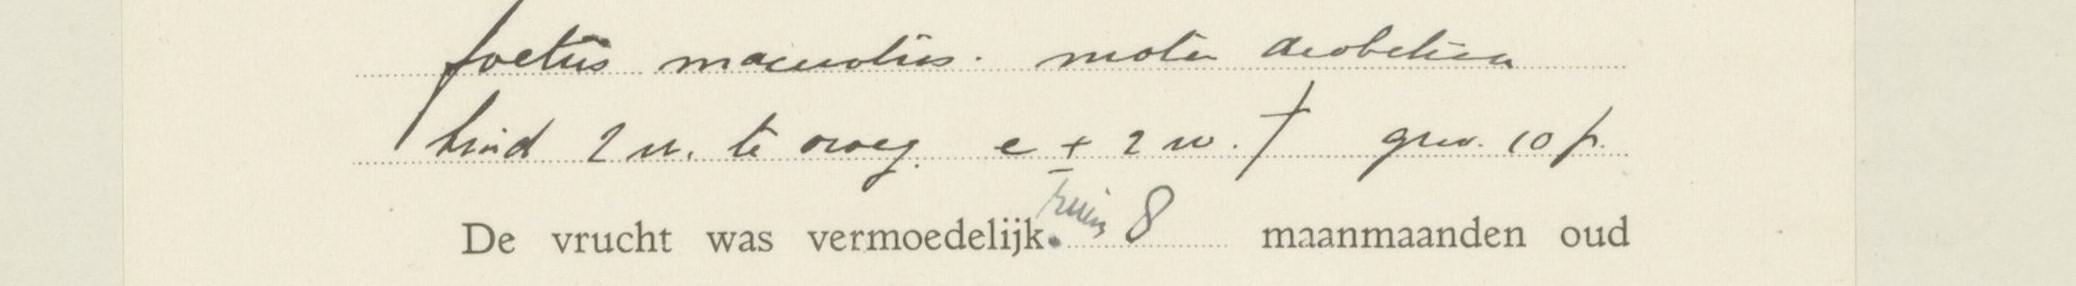 foetus maceratus. mater diabetica
kind 2 w. te vroeg. e ± 2 w. † gew. 10 p.
De vrucht was vermoedelijk ruim 8 maanmaanden oud